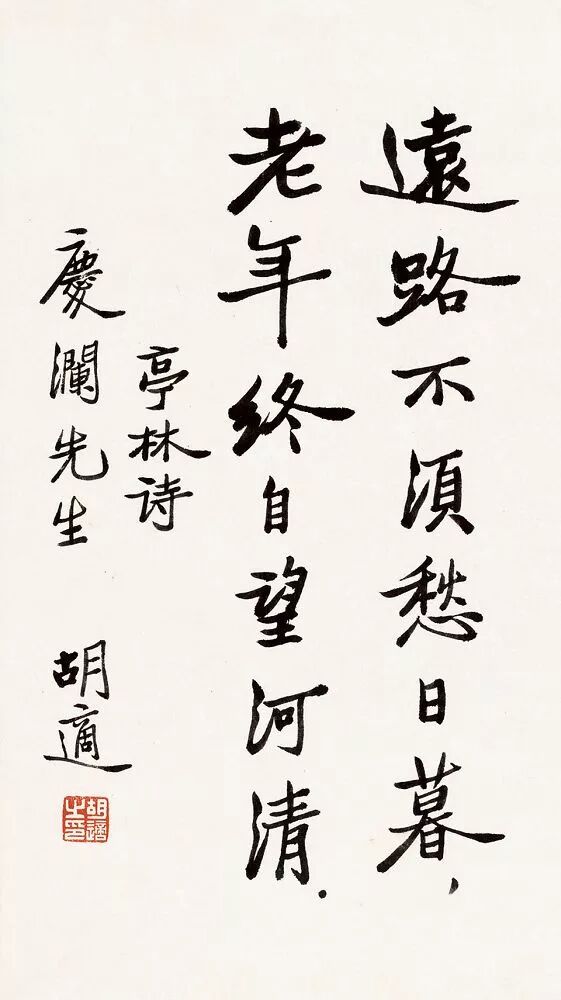 遠路不須愁日暮，
老年終自望河清．
亭林诗
慶瀾先生
胡適
胡適之印